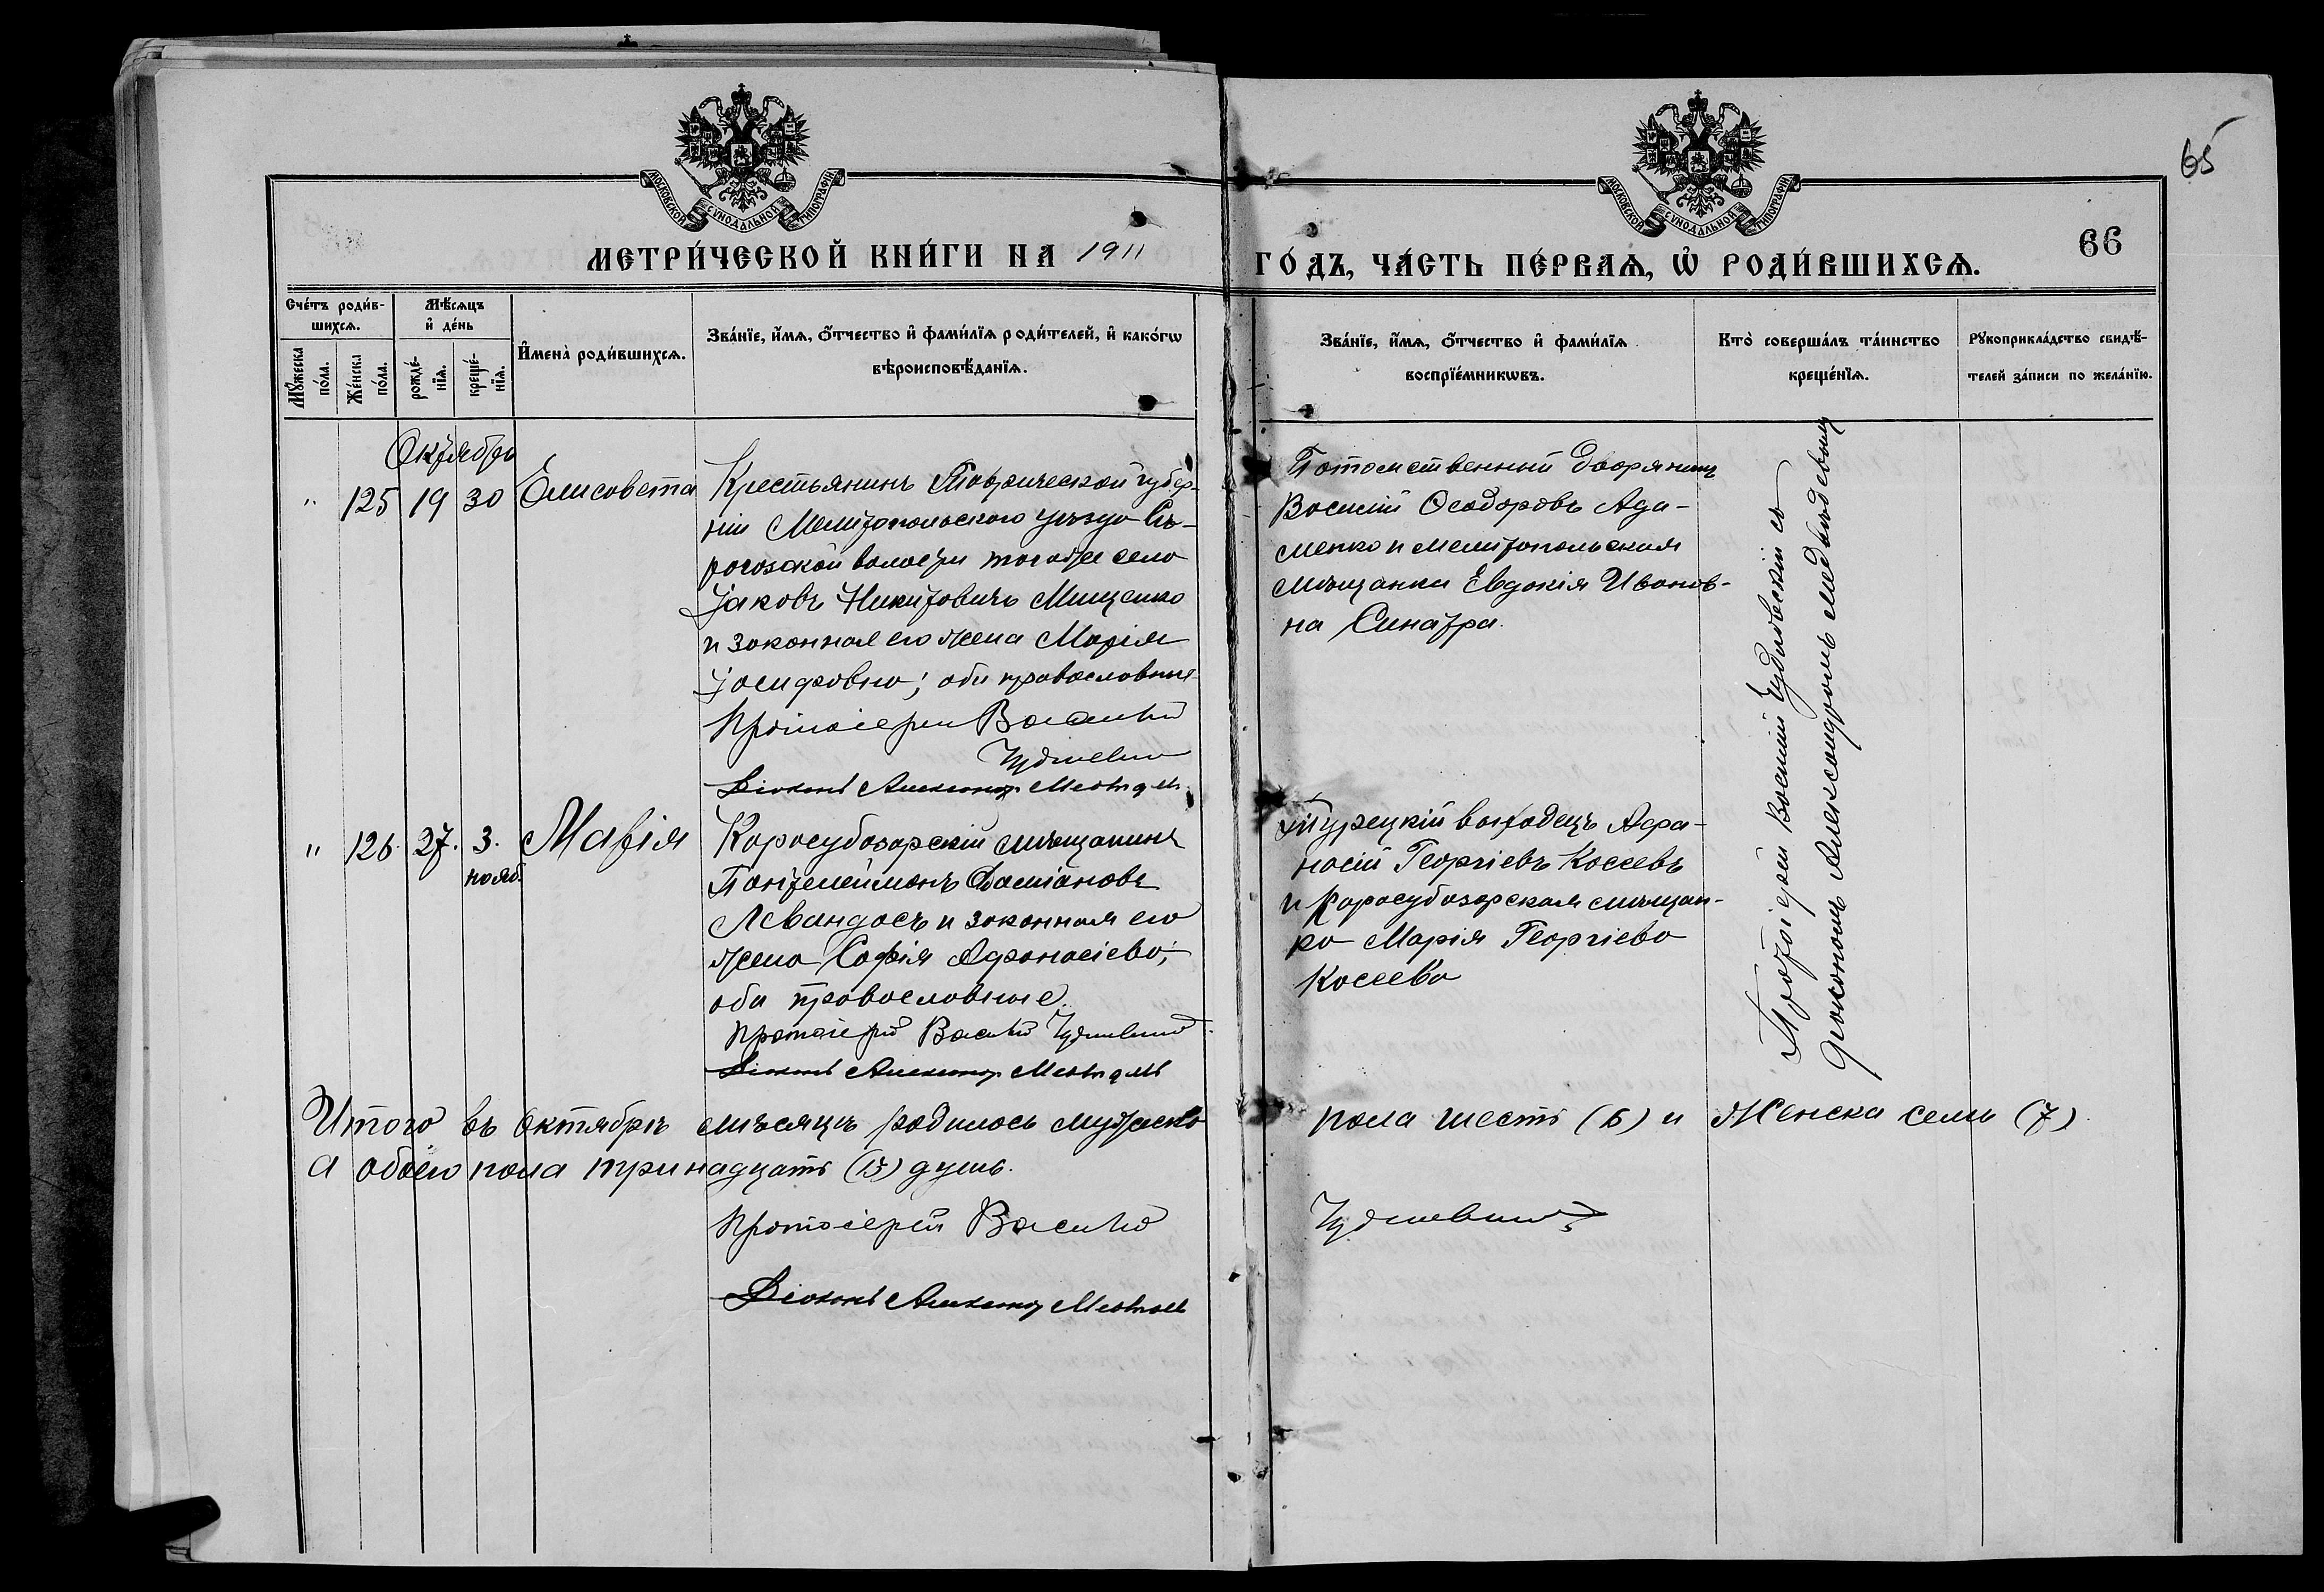 65
МОСКОВСКОЙ СѴНОДАЛЬНОЙ ТИПОГРАФІИ
МОСКОВСКОЙ СѴНОДАЛЬНОЙ ТИПОГРАФІИ
МЕТРИ́ЧЕСКОЙ КНИ́ГИ НА 1911
ГО́ДЪ, ЧА́СТЬ ПЕ́РВАѦ, Ѡ҆ РОДИ́ВШИХСѦ.
66
Сче́тъ роди́в-
шихсѧ.
Мѣ́сѧцъ
и҆ де́нь
Мꙋ́жеска
по́ла.
Же́нска
по́ла.
рожде́-
нїѧ.
креще́-
нїѧ.
И҆мена̀ роди́вшихсѧ.
Зва́нїе, и҆́мѧ, ѻ҆́тчество и҆ фами́лїѧ роди́телей, и҆ како́гѡ
вѣроисповѣ́данїѧ.
Зва́нїе, и҆́мѧ, ѻ҆́тчество и҆ фами́лїѧ
воспрїе́мникѡвъ.
Кто̀ соверша́лъ та́инство
креще́нїѧ.
Рꙋкоприкла́дство свидѣ́-
телей за́писи по жела́нїю.
Октябрь
" 125 19 30 Елисавета
Крестьянинъ Таврической губер-
ніи Мелитопольскаго уѣзда Сѣ-
рогозской волости того же села
Іаковъ Никитовичъ Мищенко
и законная его жена Марія
Іосифовна; оба православные
Протоіерей Василій
Чудновскій
Діаконъ Александр
Потомственный дворянинъ
Василій Ѳеодоровъ Ада-
менко и мелитопольская
мѣщанка Евдокія Иванов-
на Синатра.
Протоіерей Василій Чудновскій съ
діакономъ Александромъ Медвѣдевымъ
" 126. 27. 3. Марія
нояб.
Карасубазарскій мѣщанинъ
Пантелеймонъ Даміановъ
Левандосъ и законная его
жена Софія Афанасіева;
оба православные.
Протоіерей Василій Чудновскій
Діаконъ Александр
Турецкій выходецъ Афа-
насій Георгіевъ Косеевъ
и Карасубазарская мѣщан-
ка Марія Георгіева
Косеева
Итого въ октябрѣ мѣсяцѣ родилось мужеска
пола шесть (6) и женска семь (7)
а обоего пола тринадцать (13) душъ.
Протоіерей Василій
Чудновскій
Діаконъ Александр